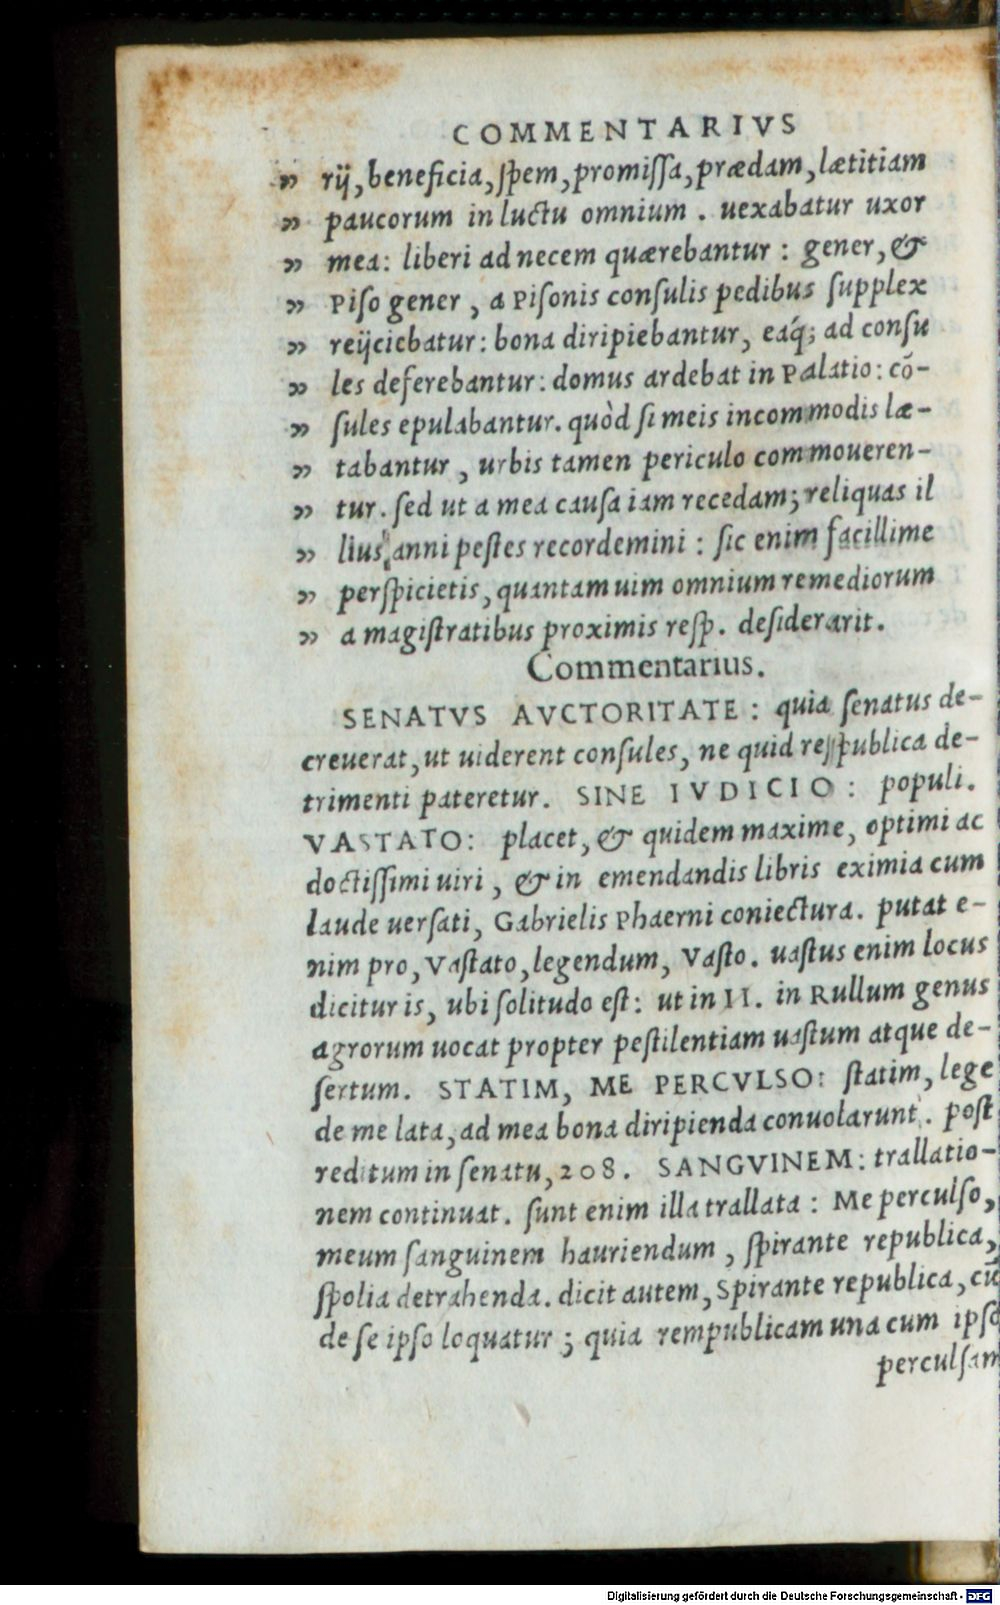 COMMENTARIVS
” rij, beneficia, ſpem, promiſſa, prædam, lætitiam
” paucorum in luctu omnium . uexabatur uxor
” mea: liberi ad necem quærebantur : gener, &
” Piſo gener , a Piſonis conſulis pedibus ſupplex
” reijciebatur: bona diripiebantur, eaq́; ad conſu
” les deferebantur: domus ardebat in Palatio: cō-
” ſules epulabantur. quòd ſi meis incommodis læ-
” tabantur , urbis tamen periculo commoueren-
” tur. ſed ut a mea cauſa iam recedam; reliquas il
” lius anni peſtes recordemini : ſic enim facillime
” perſpicietis, quantam uim omnium remediorum
” a magiſtratibus proximis reſp. deſiderarit.
Commentarius.
SENATVS AVCTORITATE : quia ſenatus de-
creuerat, ut uiderent conſules, ne quid reſpublica de-
trimenti pateretur. SINE IVDICIO : populi.
VASTATO: placet, & quidem maxime, optimi ac
doctiſſimi uiri, & in emendandis libris eximia cum
laude uerſati, Gabrielis Phaerni coniectura. putat e-
nim pro, Vaſtato, legendum, Vaſto. uaſtus enim locus
dicitur is, ubi ſolitudo eſt: ut in II. in Rullum genus
agrorum uocat propter peſtilentiam uaſtum atque de-
ſertum. STATIM, ME PERCVLSO: ſtatim, lege
de me lata, ad mea bona diripienda conuolarunt. poſt
reditum in ſenatu, 208. SANGVINEM: trallatio-
nem continuat. ſunt enim illa trallata : Me perculſo,
meum ſanguinem hauriendum , ſpirante republica,
ſpolia detrahenda. dicit autem, Spirante republica, cū
de ſe ipſo loquatur ; quia rempublicam una cum ipſo
perculſam
Digitalisierung gefördert durch die Deutsche Forschungsgemeinschaft - DFG